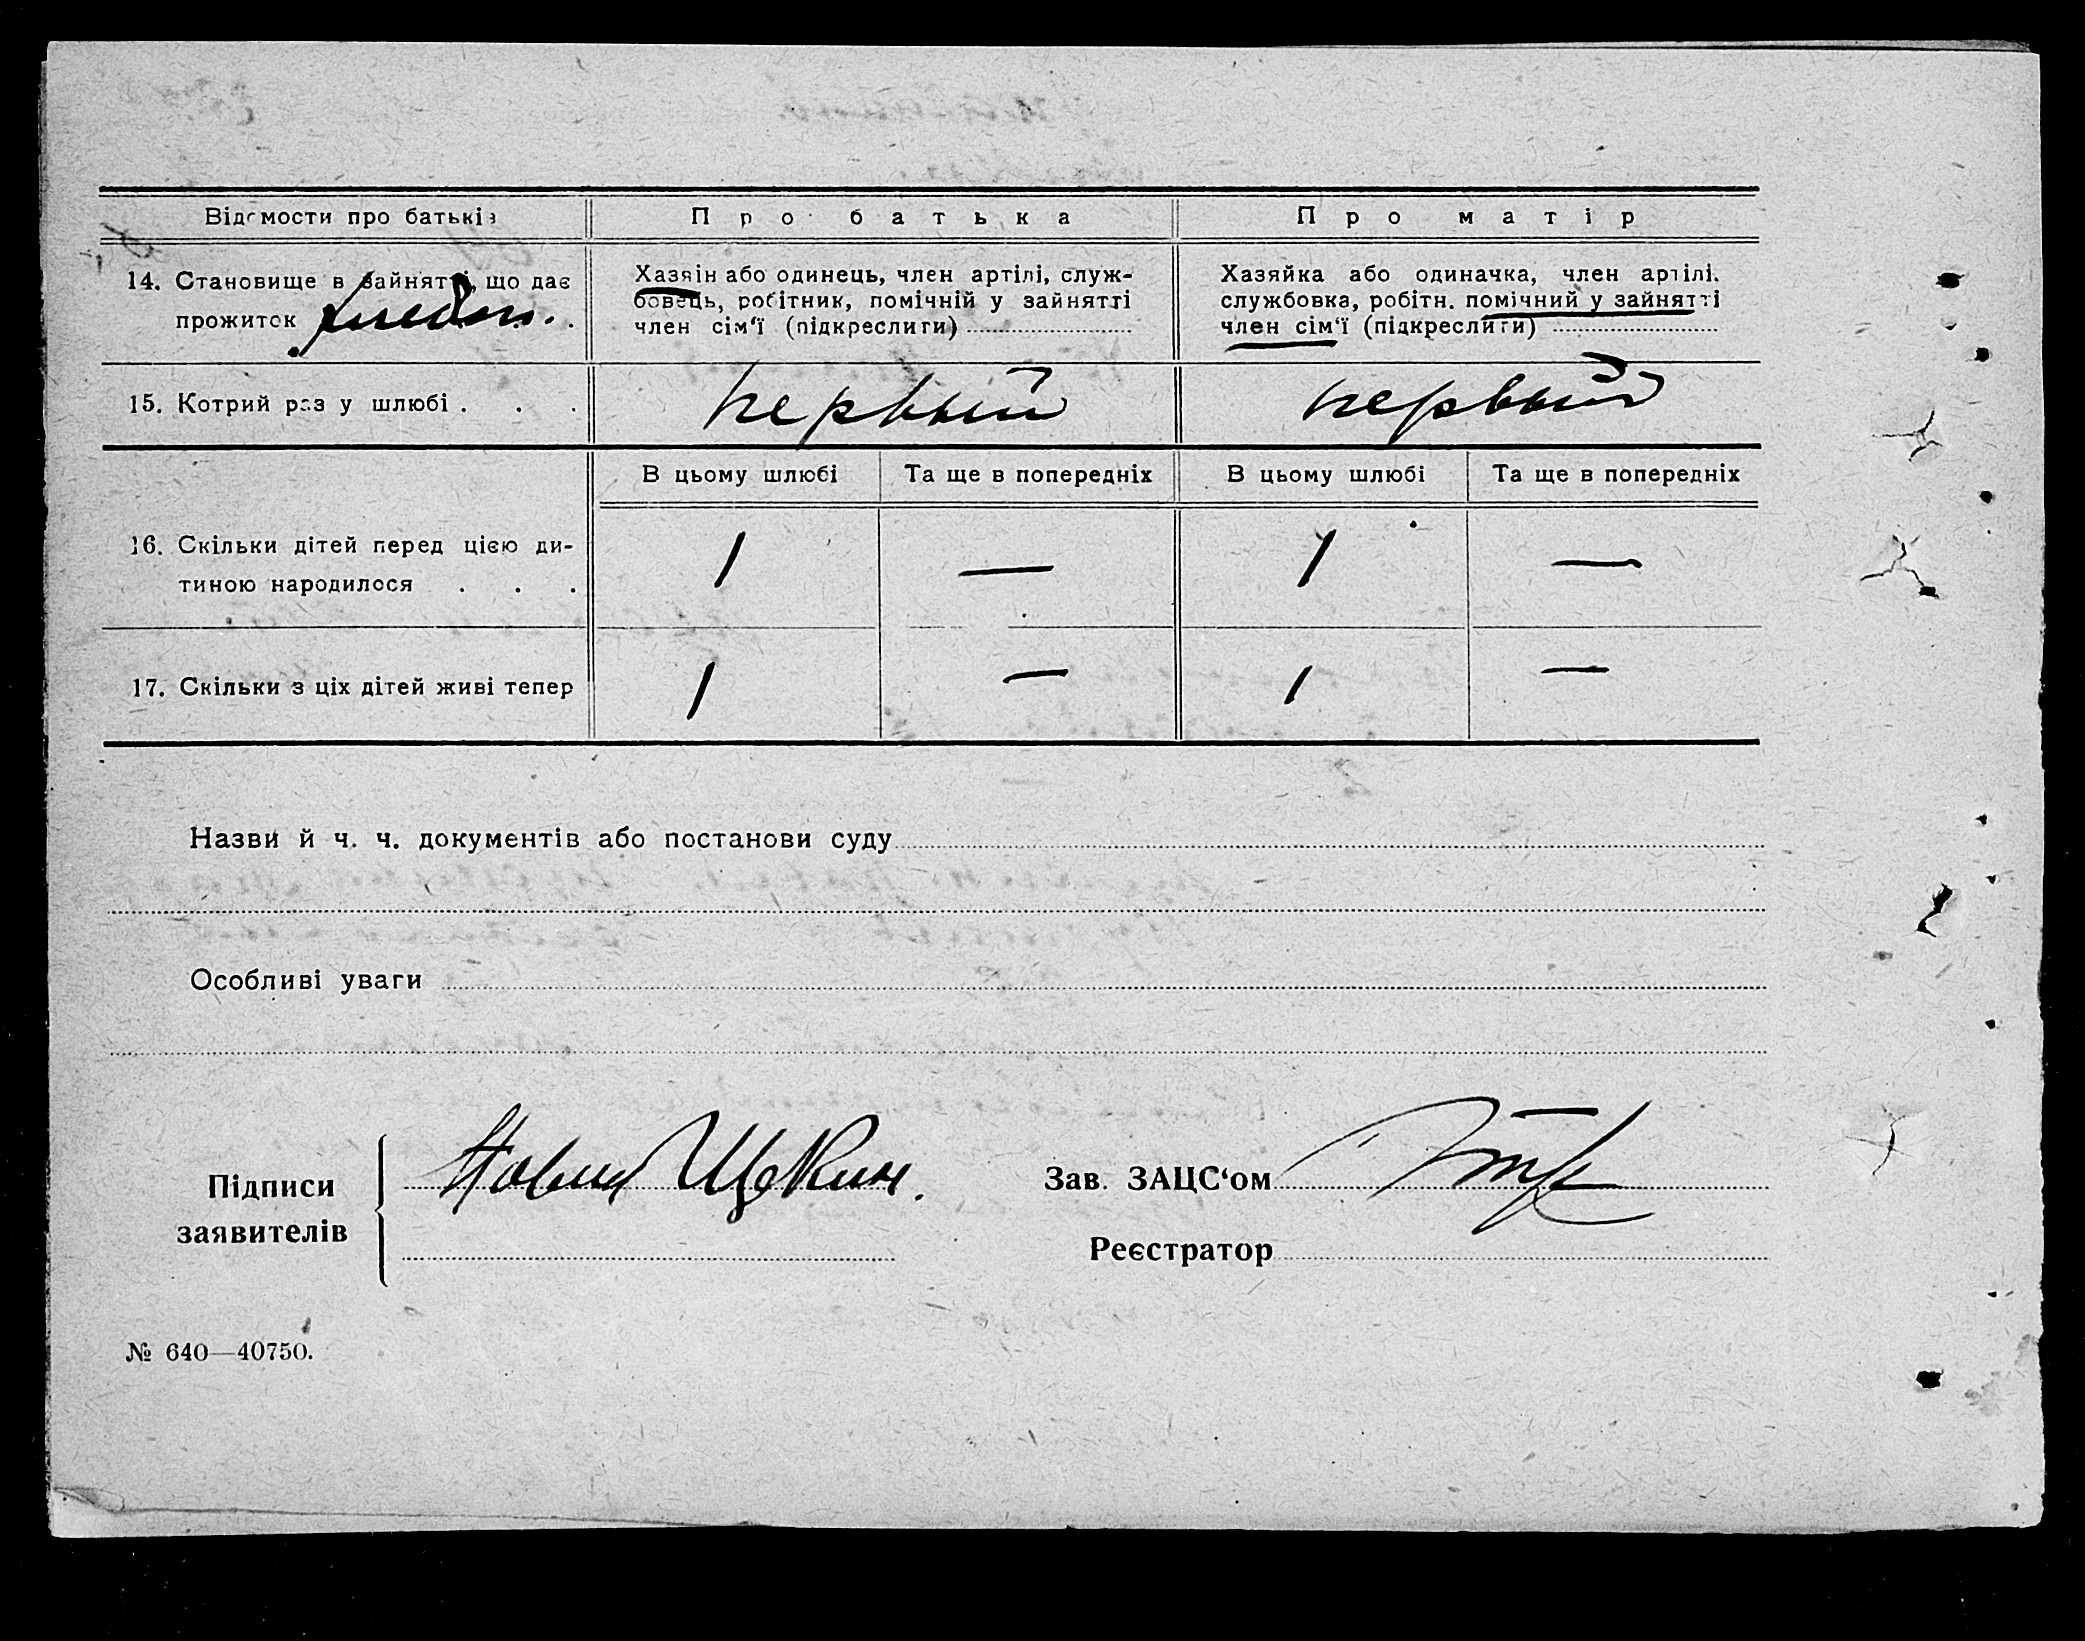 Відомости про батьків
Про батька
Про матір
14. Становище в зайнятті, що дає
прожиток
Хазяін або одинець, член артілі, служ-
бовець, робітник, помічній у зайнятті
член сім'ї (підкреслити)
Хазяйка або одиначка, член артілі.
службовка, робітн. помічний у зайнятті
член сім'ї (підкреслити)
15. Котрий раз у шлюбі . . .
первый
первый
В цьому шлюбі
Та ще в попередніх
В цьому шлюбі
Та ще в попередніх
16. Скільки дітей перед цією ди-
тиною народилося . . .
1 — 1 —
17. Скільки з ціх дітей живі тепер
1 — 1 —
Назви й ч. ч. документів або постанови суду
Особливі уваги
Підписи
заявителів
Зав. ЗАЦС‘ом
Реєстратор
№ 640—40750.